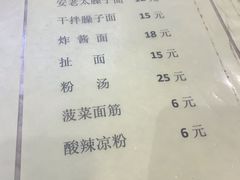 安老太臊子面
干拌臊子面 15 元
炸酱面 18 元
扯面 15 元
粉汤 25 元
菠菜面筋 6 元
酸辣凉粉 6 元